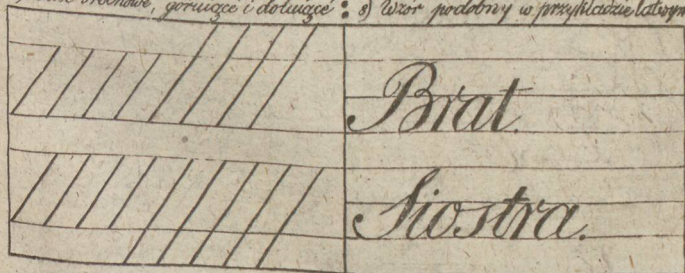 średniowe, gorujące i dołujące : s) Wzór podobny w przykładzie łatwym
Brat.
Siostra.